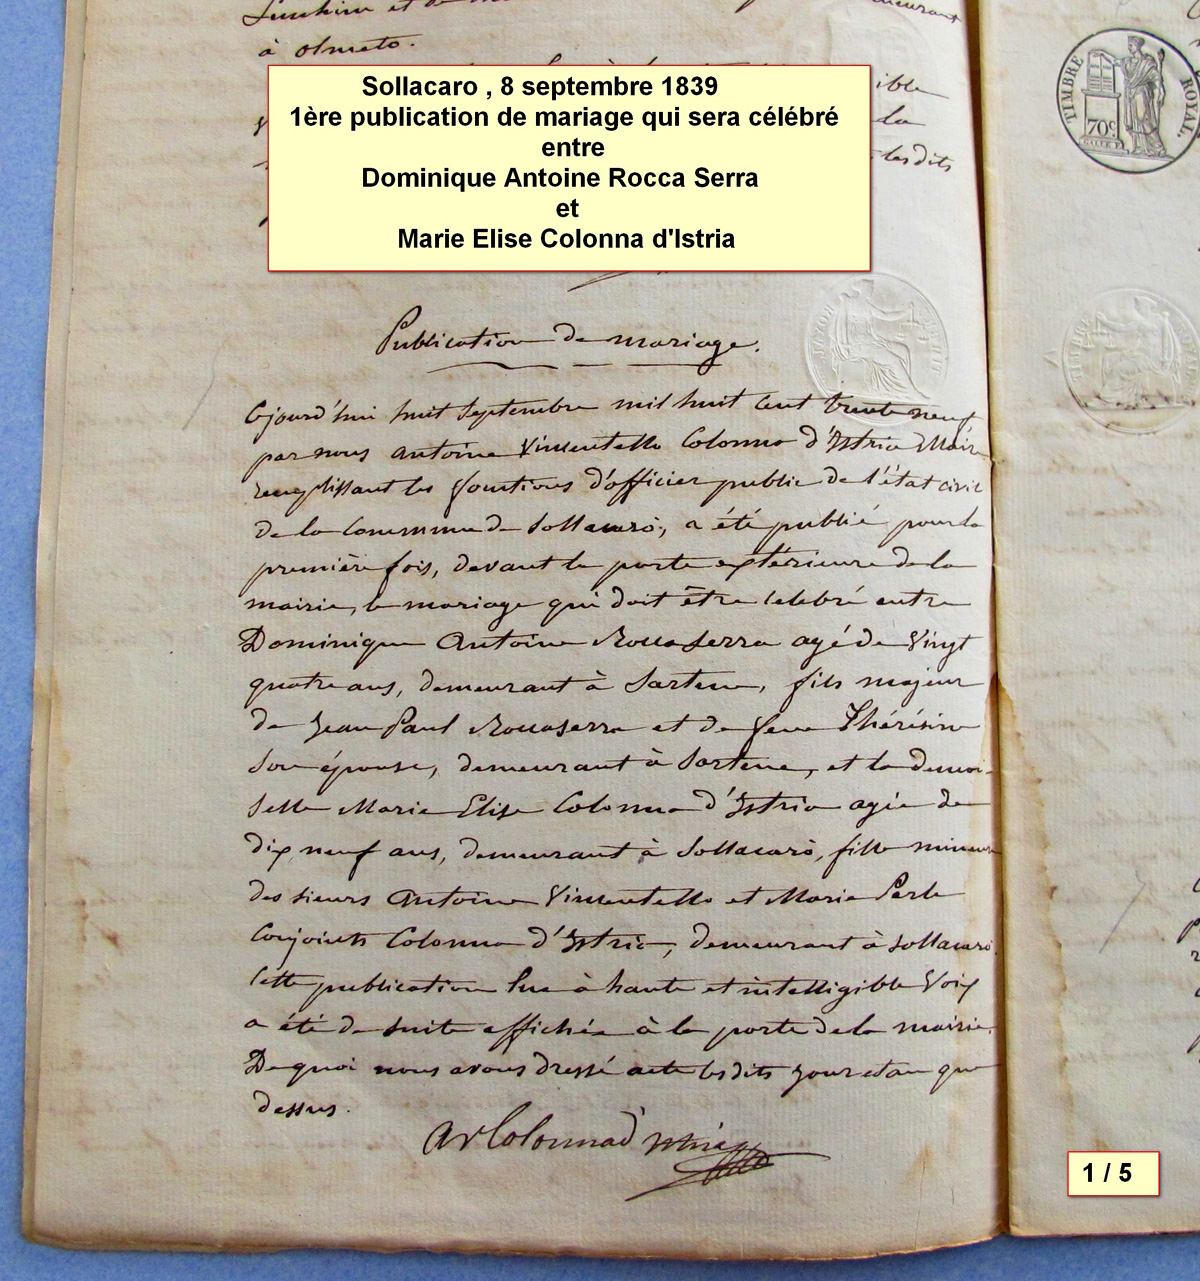 à olmeto.
Sollacaro , 8 septembre 1839
1ère publication de mariage qui sera célébré
entre
Dominique Antoine Rocca Serra
et
Marie Elise Colonna d'Istria
TIMBRE ROYAL.
70c
Publication de mariage.
Ajourd'hui huit Septembre mil huit cent trente neuf
par nous Antoine Vincentello Colonna d'Istria Maire
remplissant les fonctions d'officier public de l'état civil
de la Commune de Sollacaro, a été publié pour la
première fois, devant la porte extérieure de la
mairie, le mariage qui doit être celebré entre
Dominique Antoine RoccaSerra agé de Vingt
quatre ans, demeurant à Sartene, fils majeur
de Jean Paul RoccaSerra et de feue Thérésine
son épouse, demeurant à Sartene, et la demoi-
selle Marie Elise Colonna d'Istria agée de
dix neuf ans, demeurant à Sollacarò, fille mineure
des sieurs Antoine Vincentello et Marie Perle
Conjoints Colonna d'Istria, demeurant à Sollacarò.
Cette publication lue à haute et intelligible Voix
a été de suite affichée à la porte de la mairie.
De quoi nous avons dressé acte lesdits jour et an que
dessus.
AVColonna d'Istria
1 / 5